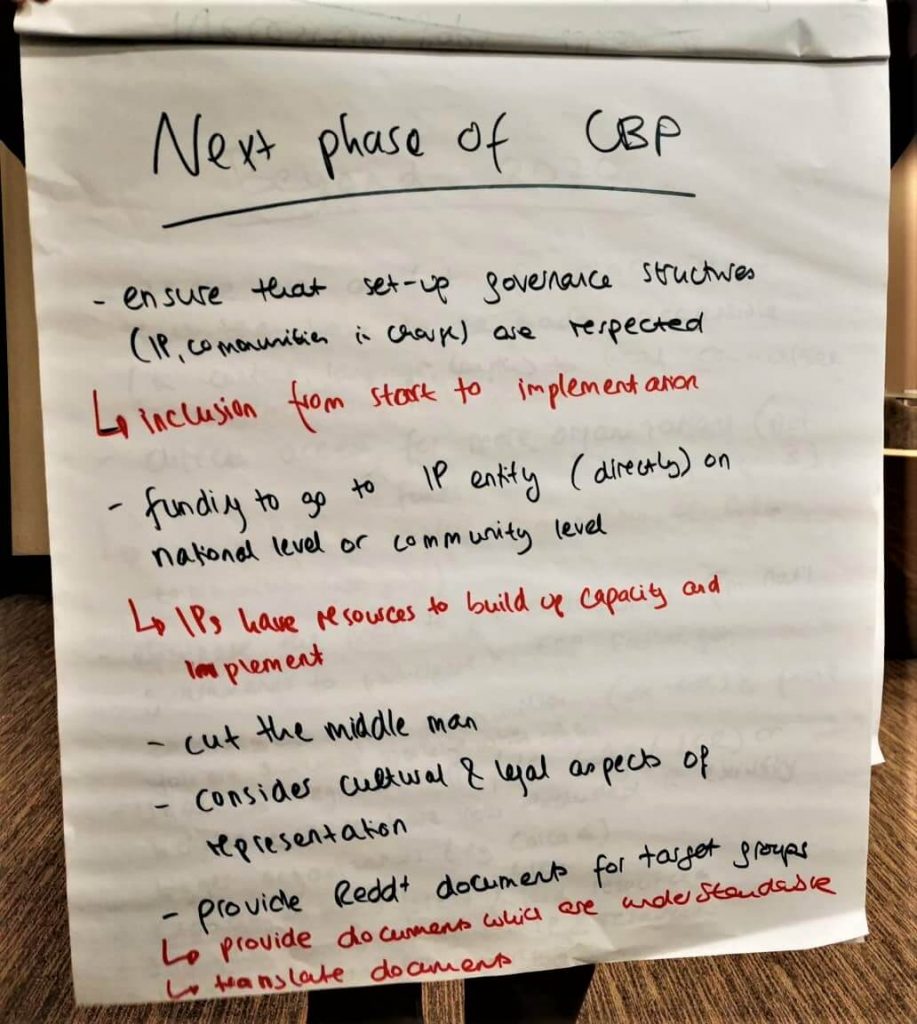 Next phase of CBP
- ensure that set-up governance structures
(IP, communities in charge) are respected
↳ inclusion from start to implementation
- funding to go to IP entity (directly) on
national level or community level
↳ IPs have resources to build up capacity and
implement
- cut the middle man
- consider cultural & legal aspects of
representation
- provide Redd+ documents for target groups
↳ provide documents which are understandable
↳ translate documents